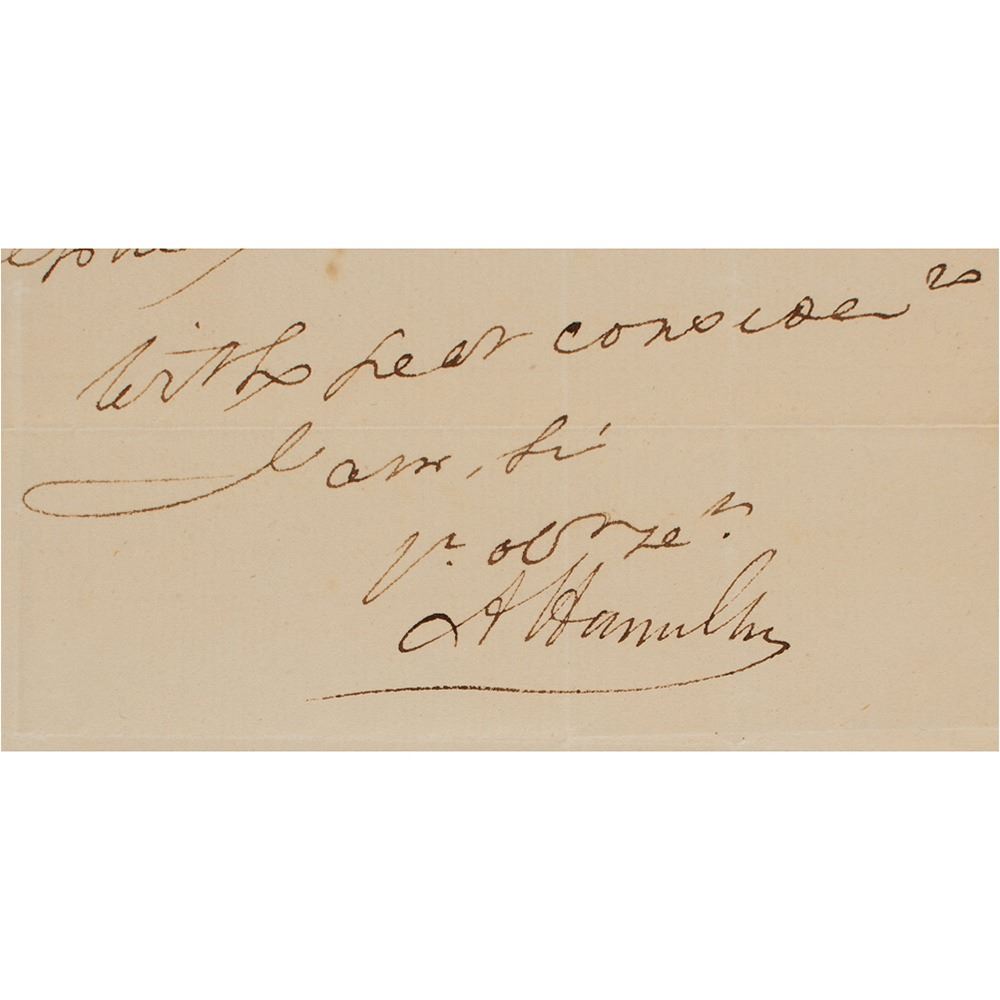 With great consider^n
I am, Sir
Yr. ob ser^t.
A Hamilton